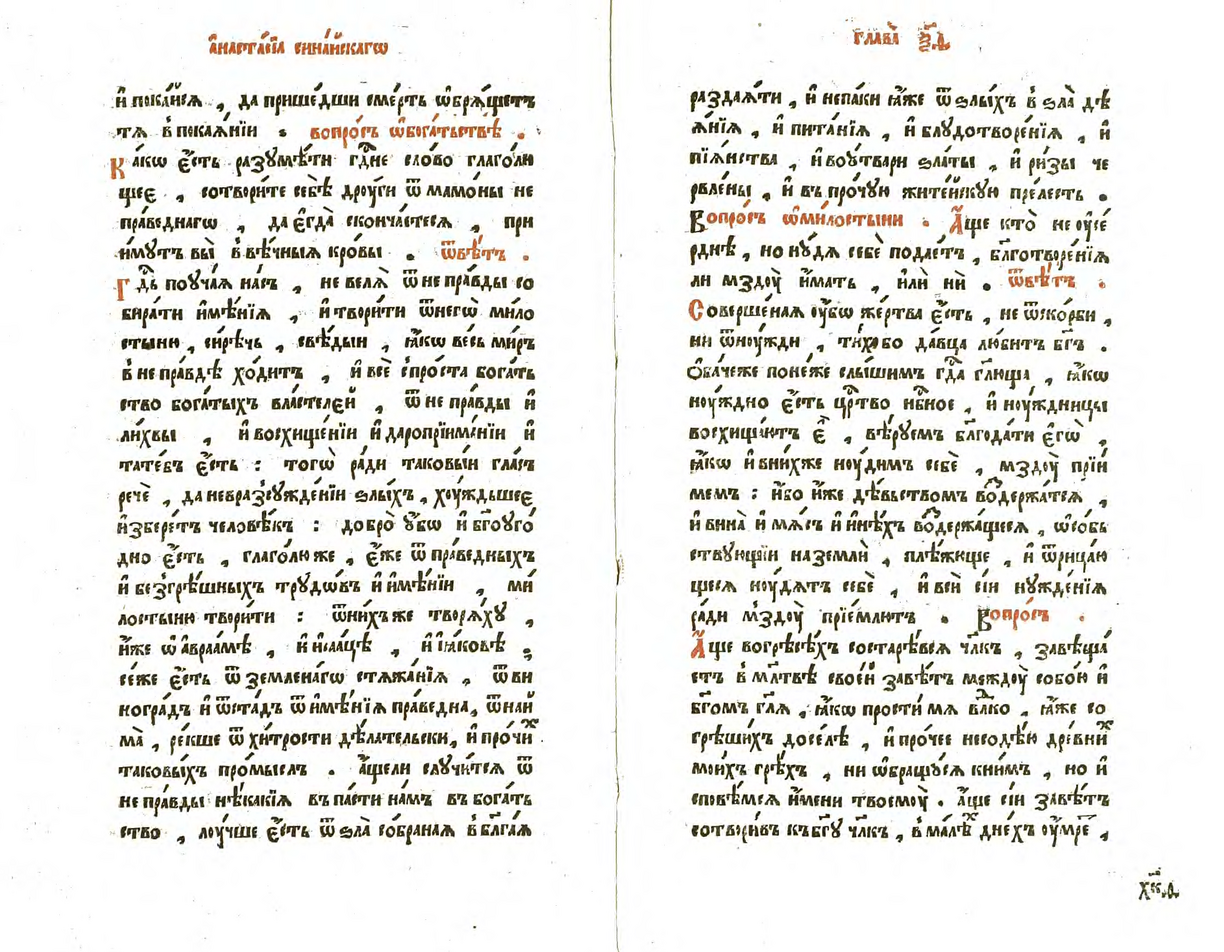 а҆наста́сїа сина́йскагѡ
и҆ пока́йсѧ , да прише́дши сме́рть ѡ҆брѧ́щетъ
тѧ в҆ покаѧ́нїи : вопро́съ ѡ҆ бога́тьствѣ .
Ка́кѡ є҆́сть разꙋмѣ́ти гд҇не сло́во глаго́лю
щеє , сотвори́те себѣ̀ дрꙋ́ги ѿ мамо́ны не
пра́веднагѡ , да є҆гда̀ сконча́етесѧ , прі
и́мꙋтъ вы̀ в҆ вѣ́чныѧ кро́вы . ѿвѣ́тъ .
Гд҇ь поꙋча́ѧ на́съ , не велѧ̀ ѿ непра́вды со
бира́ти и҆мѣ́нїѧ , и҆ твори́ти ѿ негѡ̀ мило
стыню , си́рѣчь , свѣ́дый , ꙗ҆́кѡ весь ми́ръ
в҆ непра́вдѣ хо́дитъ , и҆ всѐ спро́ста бога́ть
ство бога́тыхъ власте́лей , ѿ непра́вды и҆
ли́хвы , и҆ восхище́нїи и҆ даропрїима́нїи и҆
татéбъ є҆́сть : тогѡ̀ ра́ди таковы́й гла́съ
речѐ , да не в҆ разсꙋжде́нїи ѕлы́хъ , хꙋ́ждьшеє
и҆збере́тъ человѣ́къ : добро̀ ᲂу҆́бѡ и҆ бг҃оꙋго́
дно є҆́сть , глаго́лю же , є҆́же ѿ пра́ведныхъ
и҆ безгрѣ́шныхъ трꙋдѡ́въ и҆ и҆мѣ́нїи , ми́
лостыню твори́ти : ѿ ни́хъже творѧ́хꙋ ,
и҆̀же ѡ҆ авраа́мѣ , и҆ и҆саа́цѣ , и҆ і҆а́кѡвѣ ;
се́же є҆́сть ѿ земленагѡ стѧжа́нїѧ , ѿ ви
ногра́дъ и҆ ѿ ста́дъ ѿ и҆мѣ́нїѧ пра́ведна , ѿ наи
ма̀ , ре́кше ѿ хи́трости дѣ́лательски , и҆ про́чиⷯ
таковы́хъ про́мыслъ . а҆́щели слꙋчи́тсѧ ѿ
непра́вды нѣ́какїѧ въпа́сти на́мъ въ бога́ть
ство , лꙋ́чше є҆́сть ѿ ѕла̀ со́браная в҆ блг҃а́ѧ
глава̀ ѯ҃д
раздаѧ́ти , и҆ непа́ки ꙗ҆́же ѿ ѕлы́хъ в҆ ѕла̀ дѣ
ѧ́нїѧ , и҆ пита́нїѧ , и҆ блꙋдотворе́нїѧ , и҆
пїѧ́нства , и҆ во ᲂу҆тва́ри зла́ты , и҆ ри́зы че
рвле́ны , и҆ въ про́чꙋю жите́йскꙋю пре́лесть .
Вопро́съ ѡ҆ ми́лостыни . А҆́ще кто̀ не ᲂу҆се́
рднѣ , но нꙋ́дѧ себѐ подае́тъ , блг҃отворе́нїѧ
ли мздꙋ̀ и҆́мать , и҆лѝ нѝ . ѿвѣ́тъ .
Соверше́наѧ ᲂу҆́бѡ же́ртва є҆́сть , не ѿ ско́рби ,
ни ѿ нꙋ́жди , ти́хабо да́вца лю́битъ бг҃ъ .
Ѻ҆ба́чеже поне́же слы́шимъ гд҇а гл҃юща , ꙗ҆́кѡ
нꙋ́ждно є҆́сть цр҇тво нбн҃ое , и҆ нꙋ́ждницы
восхища́ютъ є҆̀ , вѣ́рꙋемъ благода́ти є҆гѡ̀ ,
ꙗ҆́кѡ и҆ в ни́хже нꙋ́димъ себѐ , мздꙋ̀ прїи́
мемъ : и҆́бо и҆́же дѣ́вьствомъ воⷥде́ржатсѧ ,
и҆ вина̀ и҆ мѧ́съ и҆ и҆нѣ́хъ воⷥде́ржащеесѧ , ѡ҆со́бь
ствꙋющїи на землѝ , плѣ́жюще , и҆ ѿрица́ю
щеесѧ нꙋ́дѧтъ себѐ , и҆ всѝ сїѝ нꙋжде́нїѧ
ра́ди мздꙋ̀ прїе́млютъ . Вопро́съ .
А҆́ще во грѣсѣ́хъ состарѣ́всѧ чл҃къ , завѣща
етъ в҆ мл҃твѣ свое́й завѣ́тъ междꙋ̀ собо́ю и҆
бг҃омъ гл҃ѧ , ꙗ҆́кѡ прости́ мѧ влⷣко , ꙗ҆́же со
грѣши́хъ досе́лѣ , и҆ про́чее не содѣ́ю дре́вниⷯ
мои́хъ грѣ́хъ , ни ѡ҆бращꙋ́сѧ к ни́мъ , но и҆
сповѣ́мсѧ и҆́мени твоемꙋ̀ . а҆́ще сїѝ завѣ́тъ
сотвори́въ къ бг҃ꙋ чл҃къ , в҆ ма́лѣⷯ дне́хъ ᲂу҆́мре ,